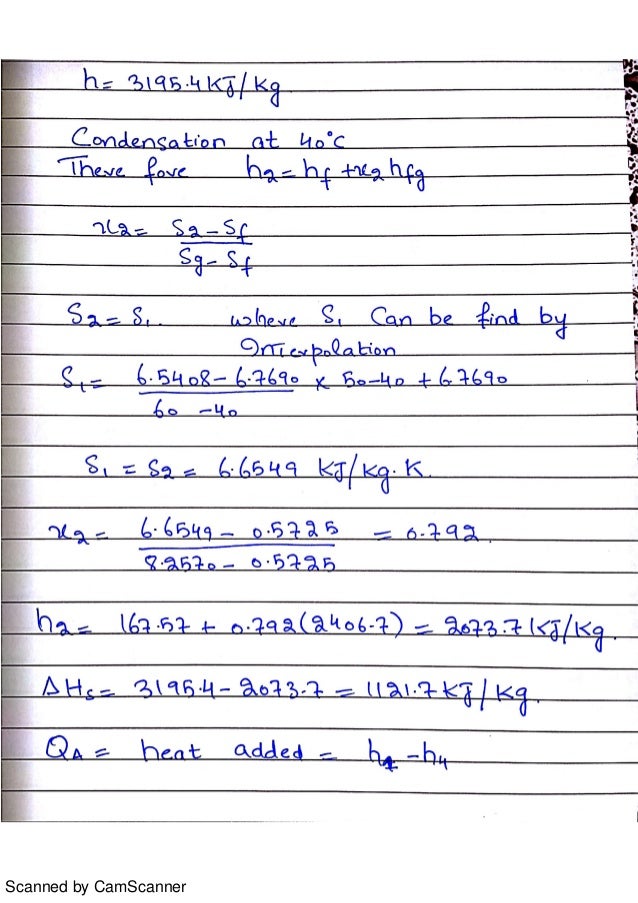 h = 3195.4 KJ/kg
Condensation at 40°C
There fore h2 = hf + x2 hfg
x2 = S2 - Sf
Sg - Sf
S2 = S1. where S1 Can be find by
Interpolation
S1 = 6.5408 - 6.7690 × 50-40 + 6.7690
60 - 40
S1 = S2 = 6.6549 KJ/kg.K.
x2 = 6.6549 - 0.5725 = 0.792.
8.2570 - 0.5725
h2 = 167.57 + 0.792(2406.7) = 2073.7 KJ/kg.
ΔHs = 3195.4 - 2073.7 = 1121.7 KJ/kg.
QA = heat added = h1 - h4
Scanned by CamScanner